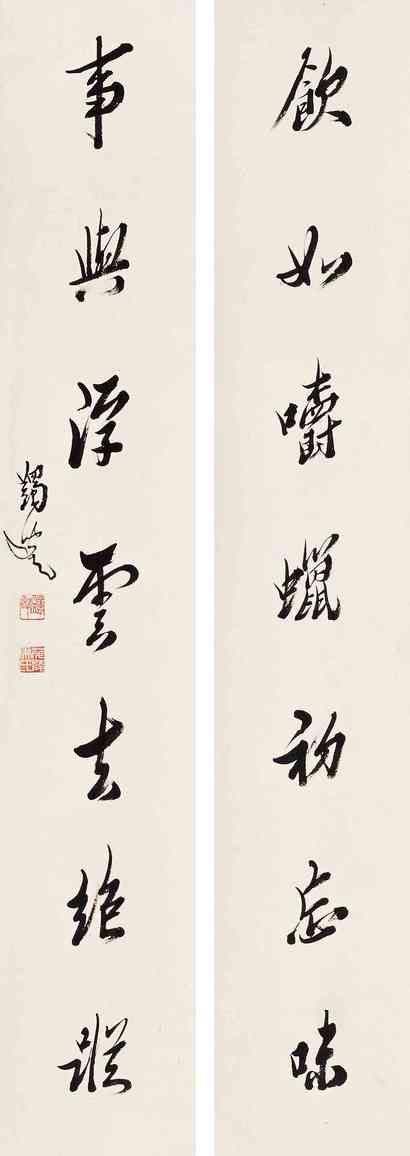 飲如嚼蠟初忘味
事與浮雲去絕蹤
蠲叟